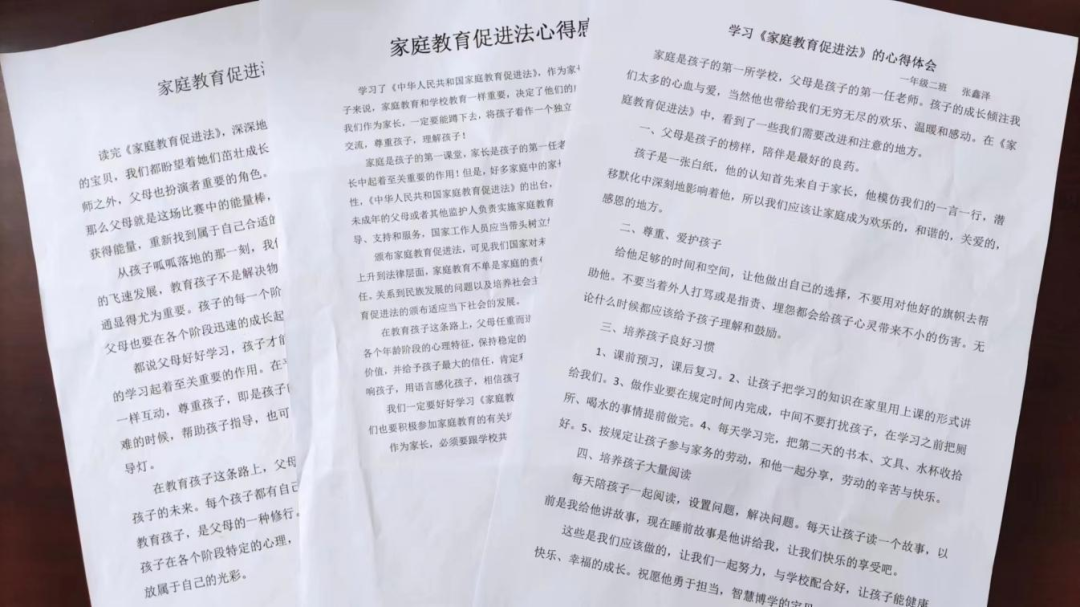 家庭教育促进法
读完《家庭教育促进法》，深深地
的宝贝，我们都盼望着她们茁壮成长
师之外，父母也扮演者重要的角色。
那么父母就是这场比赛中的能量棒，
获得能量，重新找到属于自己合适的
从孩子呱呱落地的那一刻，我们
的飞速发展，教育孩子不是解决物
通显得尤为重要。孩子的每一个阶
父母也要在各个阶段迅速的成长起
都说父母好好学习，孩子才能
的学习起着至关重要的作用。在平
一样互动，尊重孩子，即是孩子的
难的时候，帮助孩子指导，也可
导灯。
在教育孩子这条路上，父母
孩子的未来。每个孩子都有自己
教育孩子，是父母的一种修行。
孩子在各个阶段特定的心理，
放属于自己的光彩。
家庭教育促进法心得感
学习了《中华人民共和国家庭教育促进法》，作为家长
子来说，家庭教育和学校教育一样重要，决定了他们的
我们作为家长，一定要能蹲下去，将孩子看作一个独立
交流，尊重孩子，理解孩子！
家庭是孩子的第一课堂，家长是孩子的第一任老
长中起着至关重要的作用！但是，好多家庭中的家长
性，《中华人民共和国家庭教育促进法》的出台，
未成年的父母或者其他监护人负责实施家庭教育
导、支持和服务，国家工作人员应当带头树立
颁布家庭教育促进法，可见我们国家对未
上升到法律层面，家庭教育不单是家庭的责任
任、关系到民族发展的问题以及培养社会主
育促进法的颁布适应当下社会的发展。
在教育孩子这条路上，父母任重而道
各个年龄阶段的心理特征，保持稳定的
价值，并给予孩子最大的信任，肯定和
响孩子，用语言感化孩子，相信孩子
我们一定要好好学习《家庭教
们也要积极参加家庭教育的有关
作为家长，必须要跟学校共
学习《家庭教育促进法》的心得体会
一年级二班 张鑫泽
家庭是孩子的第一所学校，父母是孩子的第一任老师。孩子的成长倾注我
们太多的心血与爱，当然他也带给我们无穷无尽的欢乐、温暖和感动。在《家
庭教育促进法》中，看到了一些我们需要改进和注意的地方。
一、父母是孩子的榜样，陪伴是最好的良药。
孩子是一张白纸，他的认知首先来自于家长，他模仿我们的一言一行，潜
移默化中深刻地影响着他，所以我们应该让家庭成为欢乐的，和谐的，关爱的，
感恩的地方。
二、尊重、爱护孩子
给他足够的时间和空间，让他做出自己的选择，不要用对他好的旗帜去帮
助他。不要当着外人打骂或是指责、埋怨都会给孩子心灵带来不小的伤害。无
论什么时候都应该给予孩子理解和鼓励。
三、培养孩子良好习惯
1、课前预习，课后复习。2、让孩子把学习的知识在家里用上课的形式讲
给我们。3、做作业要在规定时间内完成，中间不要打扰孩子，在学习之前把厕
所、喝水的事情提前做完。4、每天学习完，把第二天的书本、文具、水杯收拾
好。5、按规定让孩子参与家务的劳动，和他一起分享，劳动的辛苦与快乐。
四、培养孩子大量阅读
每天陪孩子一起阅读，设置问题，解决问题。每天让孩子读一个故事，以
前是我给他讲故事，现在睡前故事是他讲给我，让我们快乐的享受吧。
这些是我们应该做的，让我们一起努力，与学校配合好，让孩子能健康
快乐、幸福的成长。祝愿他勇于担当，智慧博学的宝贝